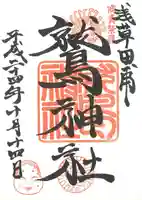 浅草田甫
鷲神社
平成二十四年十月十四日